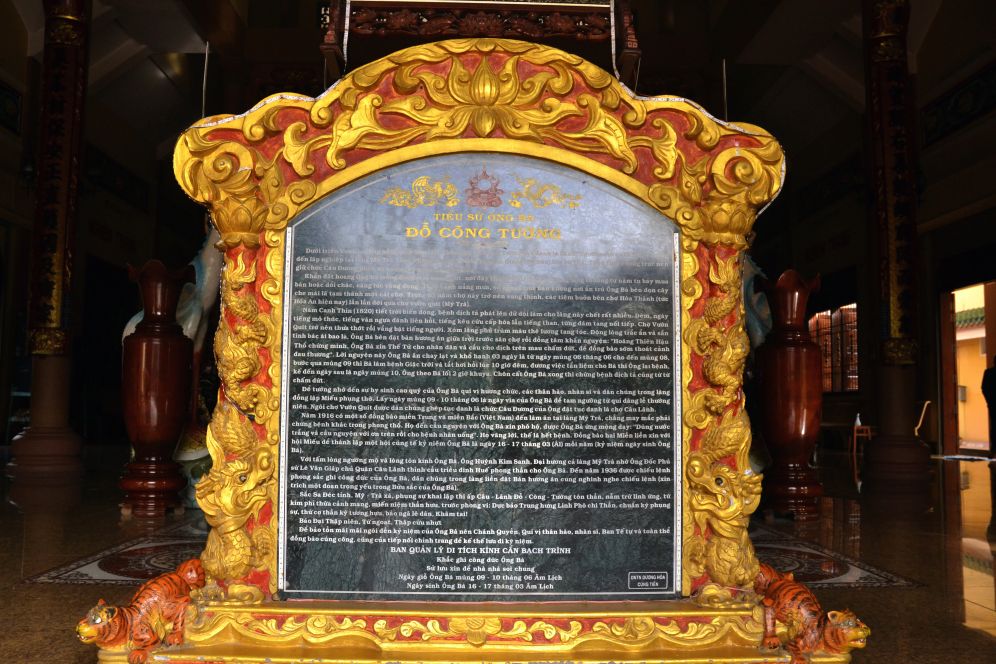 TIỂU SỬ ÔNG BÀ
ĐỖ CÔNG TƯỜNG
Dưới triều
đến lập nghiệp tại làng Mỹ Trà
giữ chức Câu Đương
Khẩn đất hoang Ông Bà
bán hoặc đổi chác, sáng lúc rạng đông
che mái lá tạm thành một cái chợ. Trước 80 năm chợ này trở nên sung thịnh, các tiệm buôn bên chợ Hòa Thành (tức
Hòa An hiện nay) lần lần dời qua chợ vườn quít (Mỹ Trà).
Năm Canh Thìn (1820) tiết trời biến động, bệnh dịch tả phát lên dữ dội làm cho làng này chết rất nhiều. Đêm, ngày
tiếng mõ thúc, tiếng ván ngựa đánh liên hồi, tiếng kêu cứu cấp hòa lẫn tiếng than, từng đám tang nối tiếp. Chợ Vườn
Quít trở nên thưa thớt rồi vắng bặt tiếng người. Xóm làng phủ trùm màu thê lương tang tóc. Động lòng trắc ẩn và sẵn
tính bác ái bao la. Ông Bà bèn đặt bàn hương án giữa trời trước sân chợ rồi đồng tâm khẩn nguyện: "Hoàng Thiên Hậu
Thổ chứng minh, Ông Bà xin Thế Tử cho nhân dân và cầu cho dịch trên mau chấm dứt, để đồng bào sớm thoát cảnh
đau thương". Lời nguyện này Ông Bà ăn chay lạt và khổ hạnh 03 ngày là từ ngày mùng 06 tháng 06 cho đến mùng 08,
bước qua mùng 09 thì Bà lâm bệnh Giặc trời và tắt hơi hồi lúc 10 giờ đêm, đương việc tẩn liệm cho Bà thì Ông lại bệnh,
kế đến ngày sau là ngày mùng 10, Ông theo Bà lối 2 giờ khuya. Chôn cất Ông Bà xong thì chứng bệnh dịch tả cũng từ từ
chấm dứt.
Để tưởng nhớ đến sự hy sinh cao quý của Ông Bà quí vị hương chức, các thân hào, nhân sĩ và dân chúng trong làng
đồng lập Miếu phụng thờ. Lấy ngày mùng 09 - 10 tháng 06 là ngày vía của Ông Bà để tam ngưỡng tứ quí dâng lễ thường
niên. Ngôi chợ Vườn Quít được dân chúng ghép tục danh là chức Câu Đương của Ông đặt tục danh là chợ Câu Lãnh.
Năm 1916 có một số đồng bào miền Trung và miền Bắc (Việt Nam) đến làm ăn tại làng Mỹ Trà, chẳng may mắc phải
chứng bệnh khác trong phong thổ. Họ đến cầu nguyện với Ông Bà xin phò hộ, được Ông Bà ứng mộng dạy: "Dùng nước
trắng và cầu nguyện với ơn trên rồi cho bệnh nhân uống". Họ vâng lời, thế là hết bệnh. Đồng bào hai Miền liền xin với
hội Miếu để thành lập một hội cúng tế kỷ niệm Ông Bà là ngày 16 - 17 tháng 03 (ÂL) mỗi năm (kỷ niệm ngày sinh Ông
Bà).
Với tấm lòng ngưỡng mộ và lòng tôn kính Ông Bà. Ông Huỳnh Kim Sanh, Đại hương cả làng Mỹ Trà nhờ Ông Đốc Phủ
sứ Lê Văn Giáp chủ Quận Cầu Lãnh thỉnh cầu triều đình Huế phong thần cho Ông Bà. Đến năm 1936 được chiếu lệnh
phong sắc ghi công đức của Ông Bà, dân chúng trong làng liền đặt Bàn hương án cung nghinh nghe chiếu lệnh (xin
trích một đoạn trọng yếu trong Bửu sắc của Ông Bà).
- Sắc Sa Đéc tỉnh, Mỹ - Trà xã, phụng sự khai lập thị ấp Câu - Lãnh Đỗ - Công - Tường tôn thần, nẫm trứ linh ứng, tứ
kim phi thừa cảnh mạng, miến niệm thần hưu, trước phong vi: Dực bảo Trung hưng Linh Phò chi Thần, chuẩn kỳ phụng
sự, thứ cơ thần kỳ tương hựu, bảo ngã lê dân. Khâm tai!
Bảo Đại Thập niên, Tứ ngoạt, Thập cửu nhựt
Để bảo tồn mãi mãi ngôi đền kỷ niệm của Ông Bà nên Chánh Quyền, Quí vị thân hào, nhân sĩ, Ban Tế tự và toàn thể
đồng bào cúng công, cúng của tiếp nối chỉnh trang để kế thế lưu di kỷ niệm.
BAN QUẢN LÝ DI TÍCH KÍNH CẨN BẠCH TRÌNH
Khắc ghi công đức Ông Bà
Sử lưu xin để nhà nhà soi chung
Ngày giỗ Ông Bà mùng 09 - 10 tháng 06 Âm Lịch
Ngày sinh Ông Bà 16 - 17 tháng 03 Âm Lịch
DNTN DƯƠNG HÒA
CÚNG TIẾN